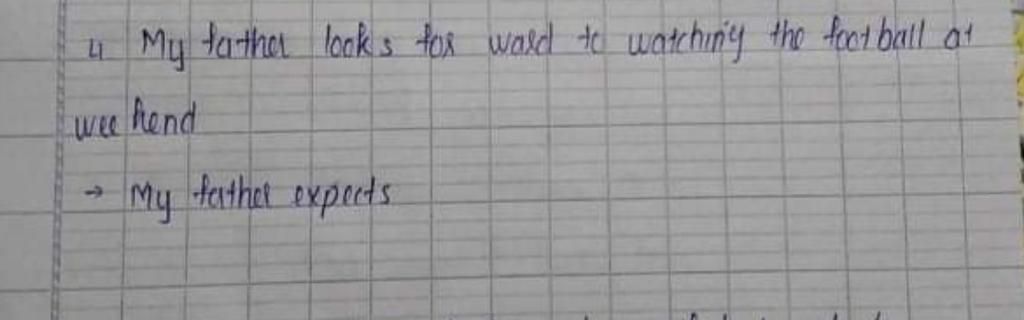 4 My father looks for ward to watching the football at
wee kend
→ My father expects